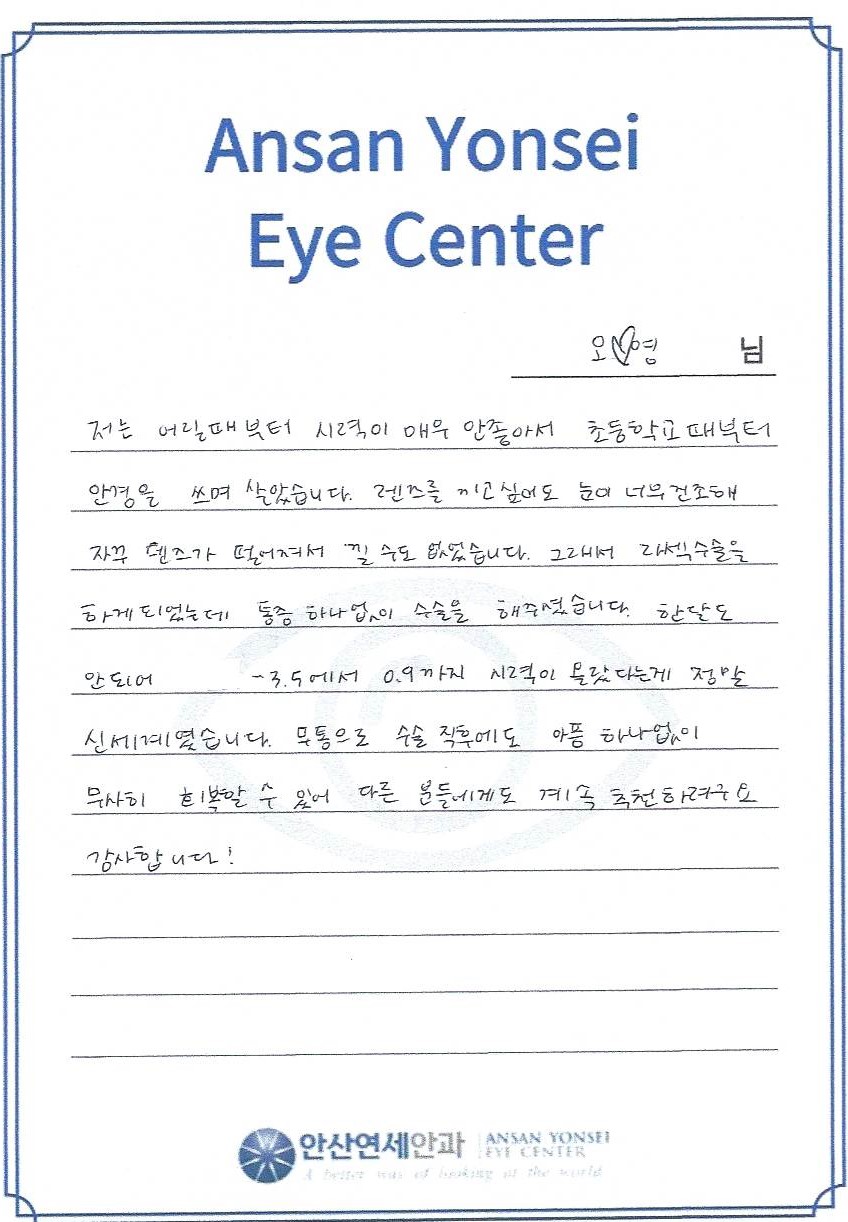 Ansan Yonsei
Eye Center
오♡영 님
저는 어릴때부터 시력이 매우 안좋아서 초등학교때부터
안경을 쓰며 살았습니다. 렌즈를 끼고싶어도 눈이 너무건조해
자꾸 렌즈가 떨어져서 낄 수도 없었습니다. 그래서 라섹수술을
하게되었는데 통증 하나없이 수술을 해주셨습니다. 한달도
안되어 -3.5에서 0.9까지 시력이 올랐다는게 정말
신세계였습니다. 무통으로 수술 직후에도 아픔 하나없이
무사히 회복할 수 있어 다른 분들에게도 계속 추천하려구요
감사합니다!
안산연세안과 ANSAN YONSEI
EYE CENTER
A better way of looking at the world